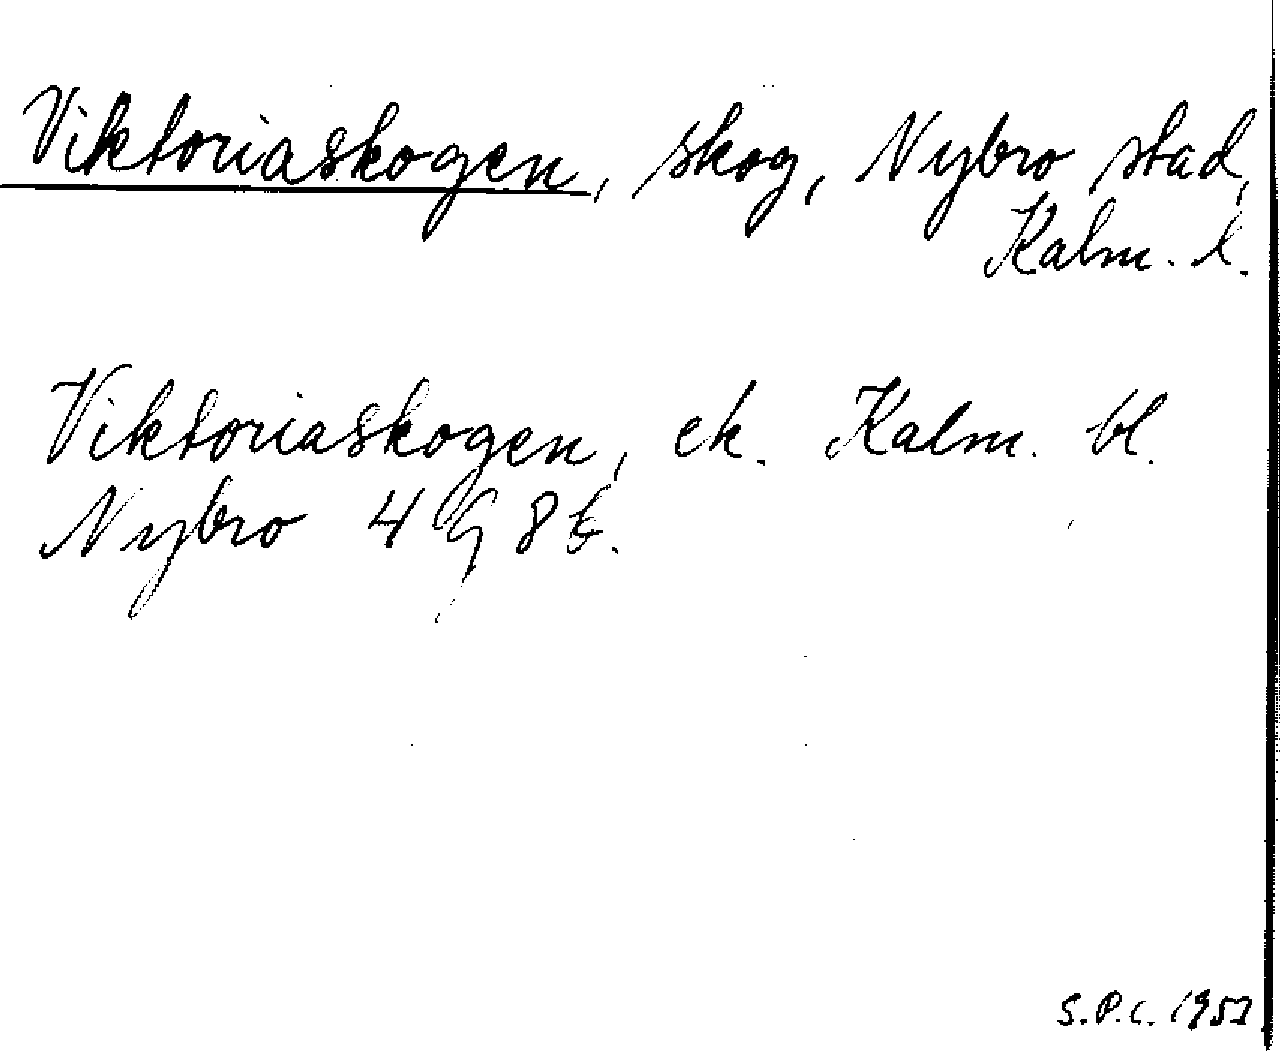 Viktoriaskogen, skog, Nybro stad,
Kalm. l.
Viktoriaskogen, ek. Kalm. bl.
Nybro 4 g 8 b.
S.P.C. 1953